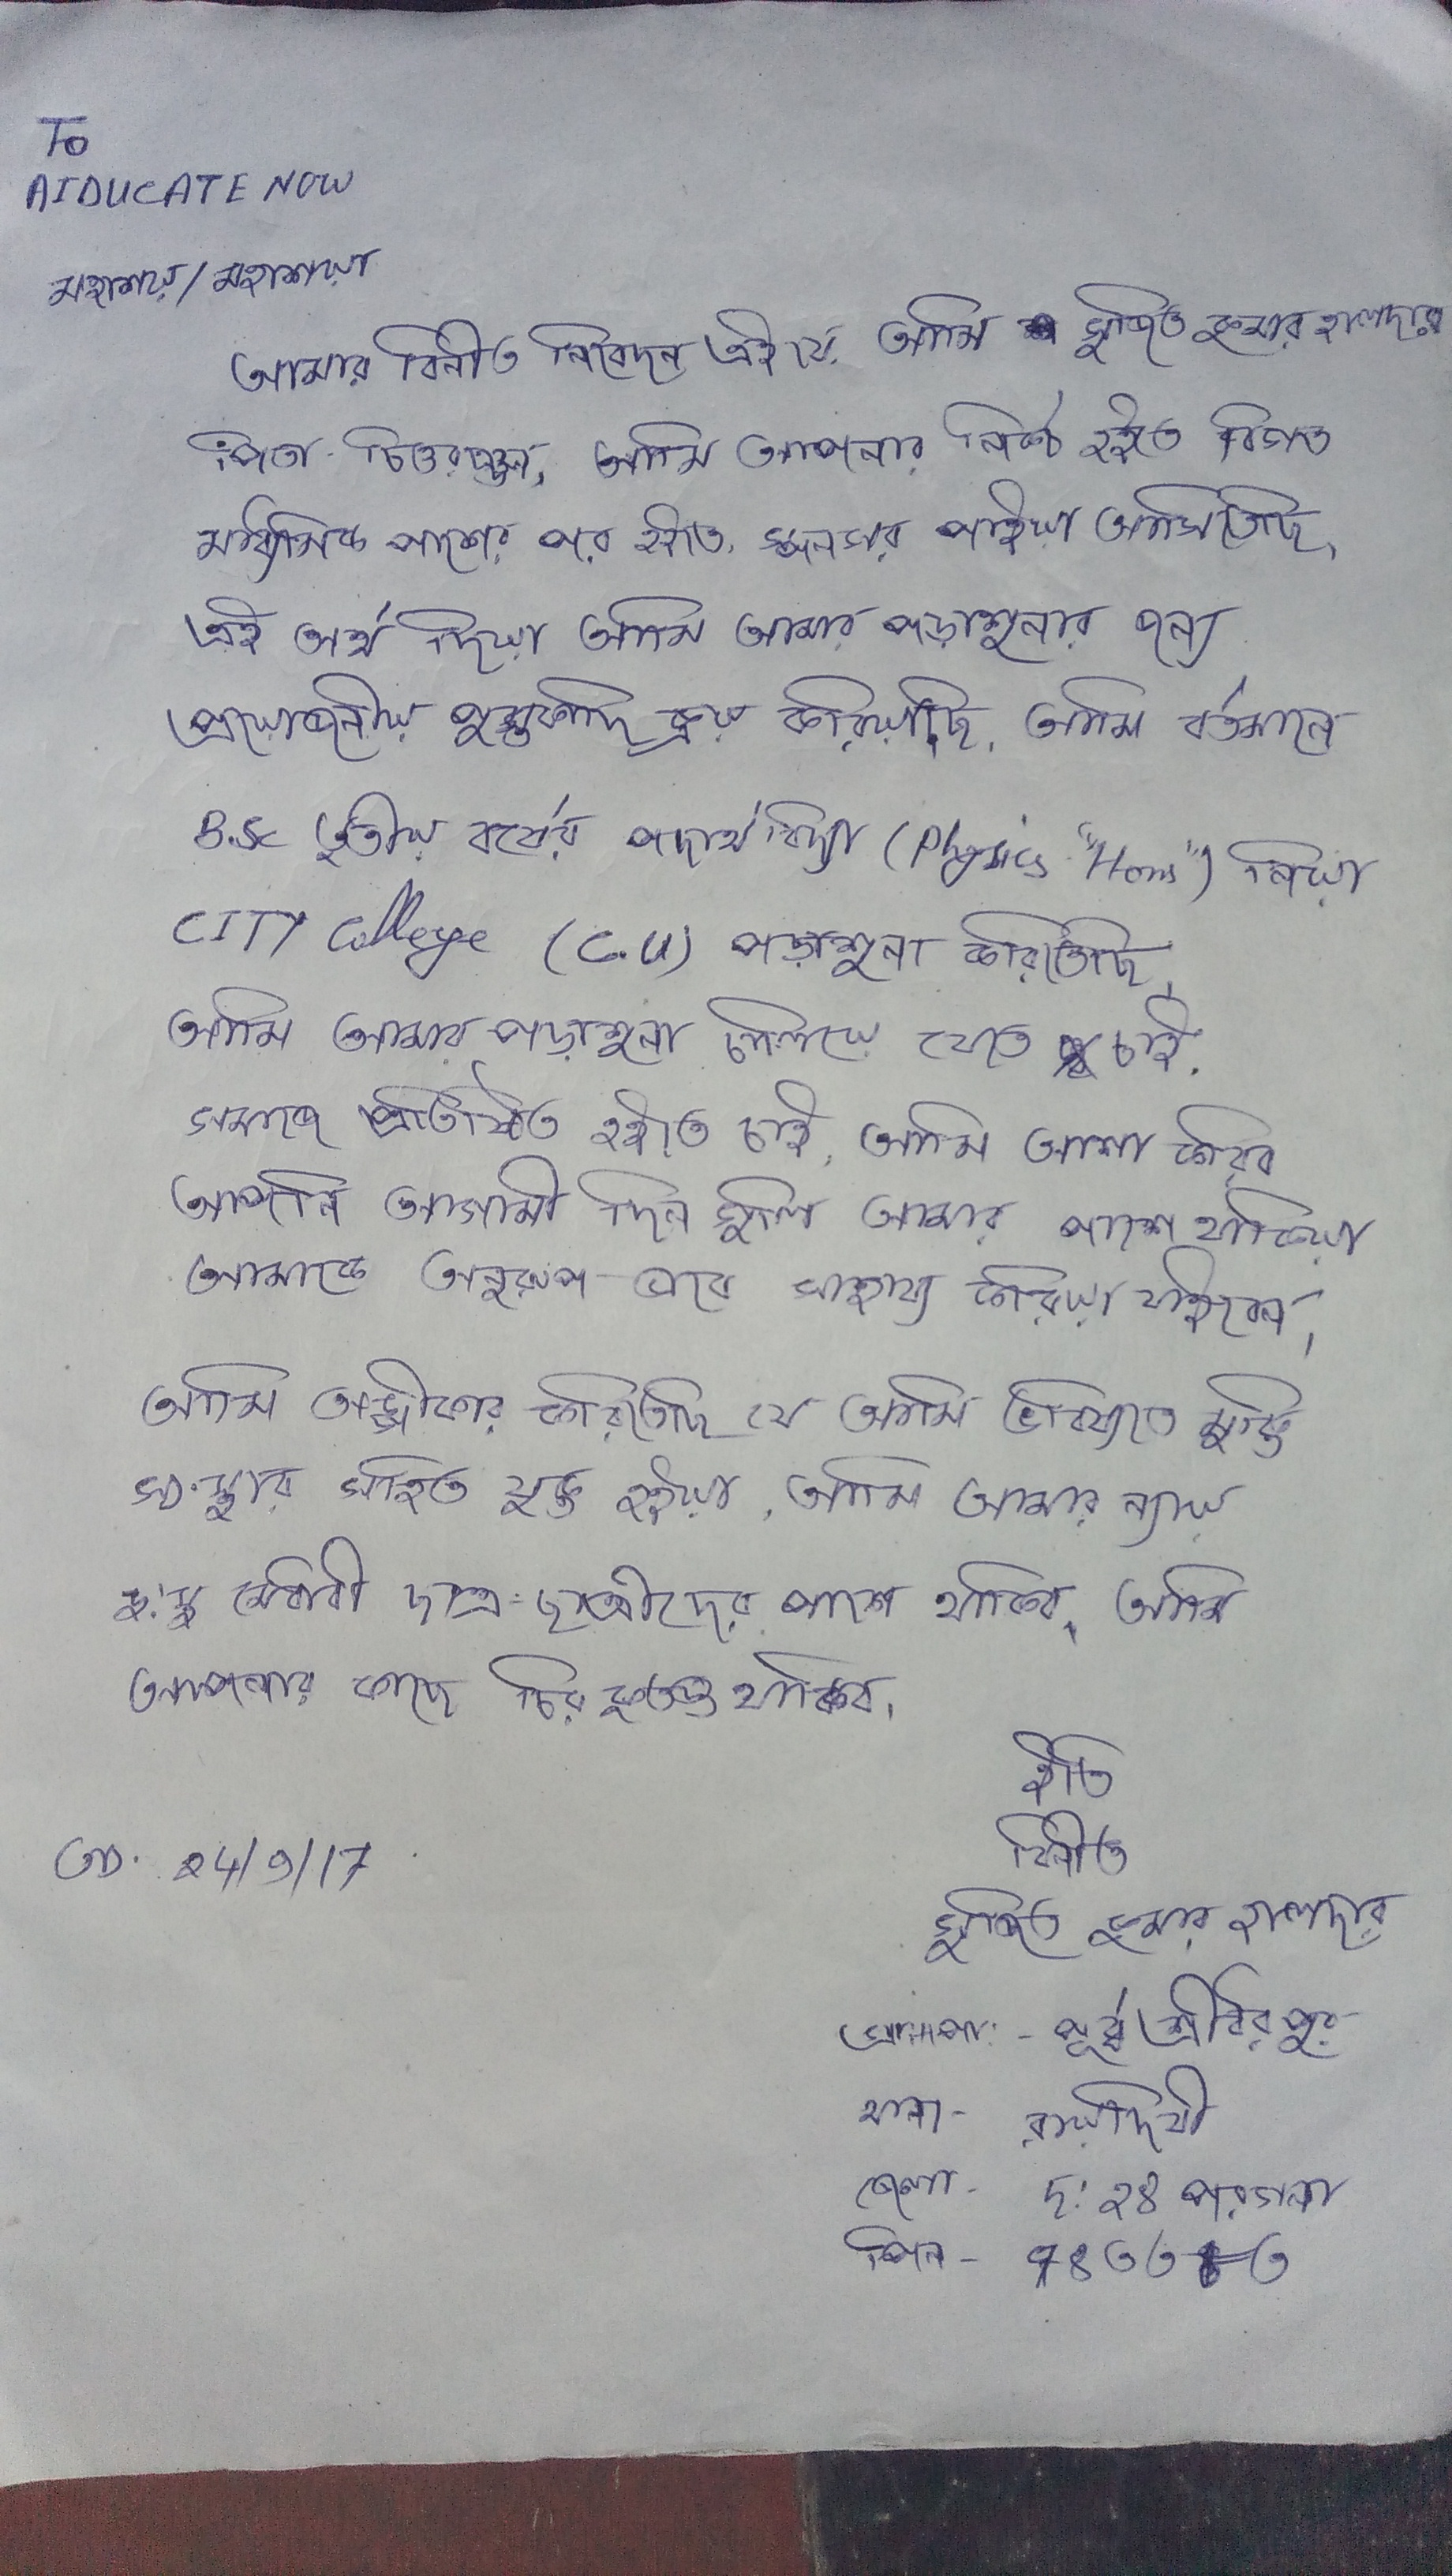 To
AIDUCATE NOW
মহাশয়/মহাশয়া
আমার বিনীত নিবেদন এই যে, আমি সুজিত কুমার হালদার
পিতা চিত্তরঞ্জন, আমি আপনার নিকট হইতে বিগত
মাধ্যমিক পাশের পর হইতে পাইয়া আসিতেছি,
এই অর্থ দিয়া আমি আমার পড়াশুনার জন্য
প্রয়োজনীয় পুস্তকাদি ক্রয় করিয়াছি, আমি বর্তমানে
B.Sc তৃতীয় বর্ষের পদার্থবিদ্যা (Physics "Hons") নিয়া
CITY College (C.U) পড়াশুনা করিতেছি,
আমি আমার পড়াশুনা চালিয়ে যেতে চাই.
সমাজে প্রতিষ্ঠিত হইতে চাই, আমি আশা করিব
আপনি আগামী দিন গুলি আমার পাশে থাকিয়া
আমাকে অনুরূপ ভাবে সাহায্য করিয়া যাইবেন,
আমি অঙ্গীকার করিতেছি যে আমি ভবিষ্যতে
সংস্থার সহিত যুক্ত হইয়া, আমি আমার ন্যায়
দুঃস্থ মেধাবী ছাত্র-ছাত্রীদের পাশে থাকিব, আমি
আপনার কাছে চির কৃতজ্ঞ থাকিব,
ইতি
বিনীত
তাং 24/9/17
সুজিত কুমার হালদার
পূর্ব শ্রীধরপুর
থানা- রায়দিঘী
জেলা- দঃ ২৪ পরগনা
পিন-